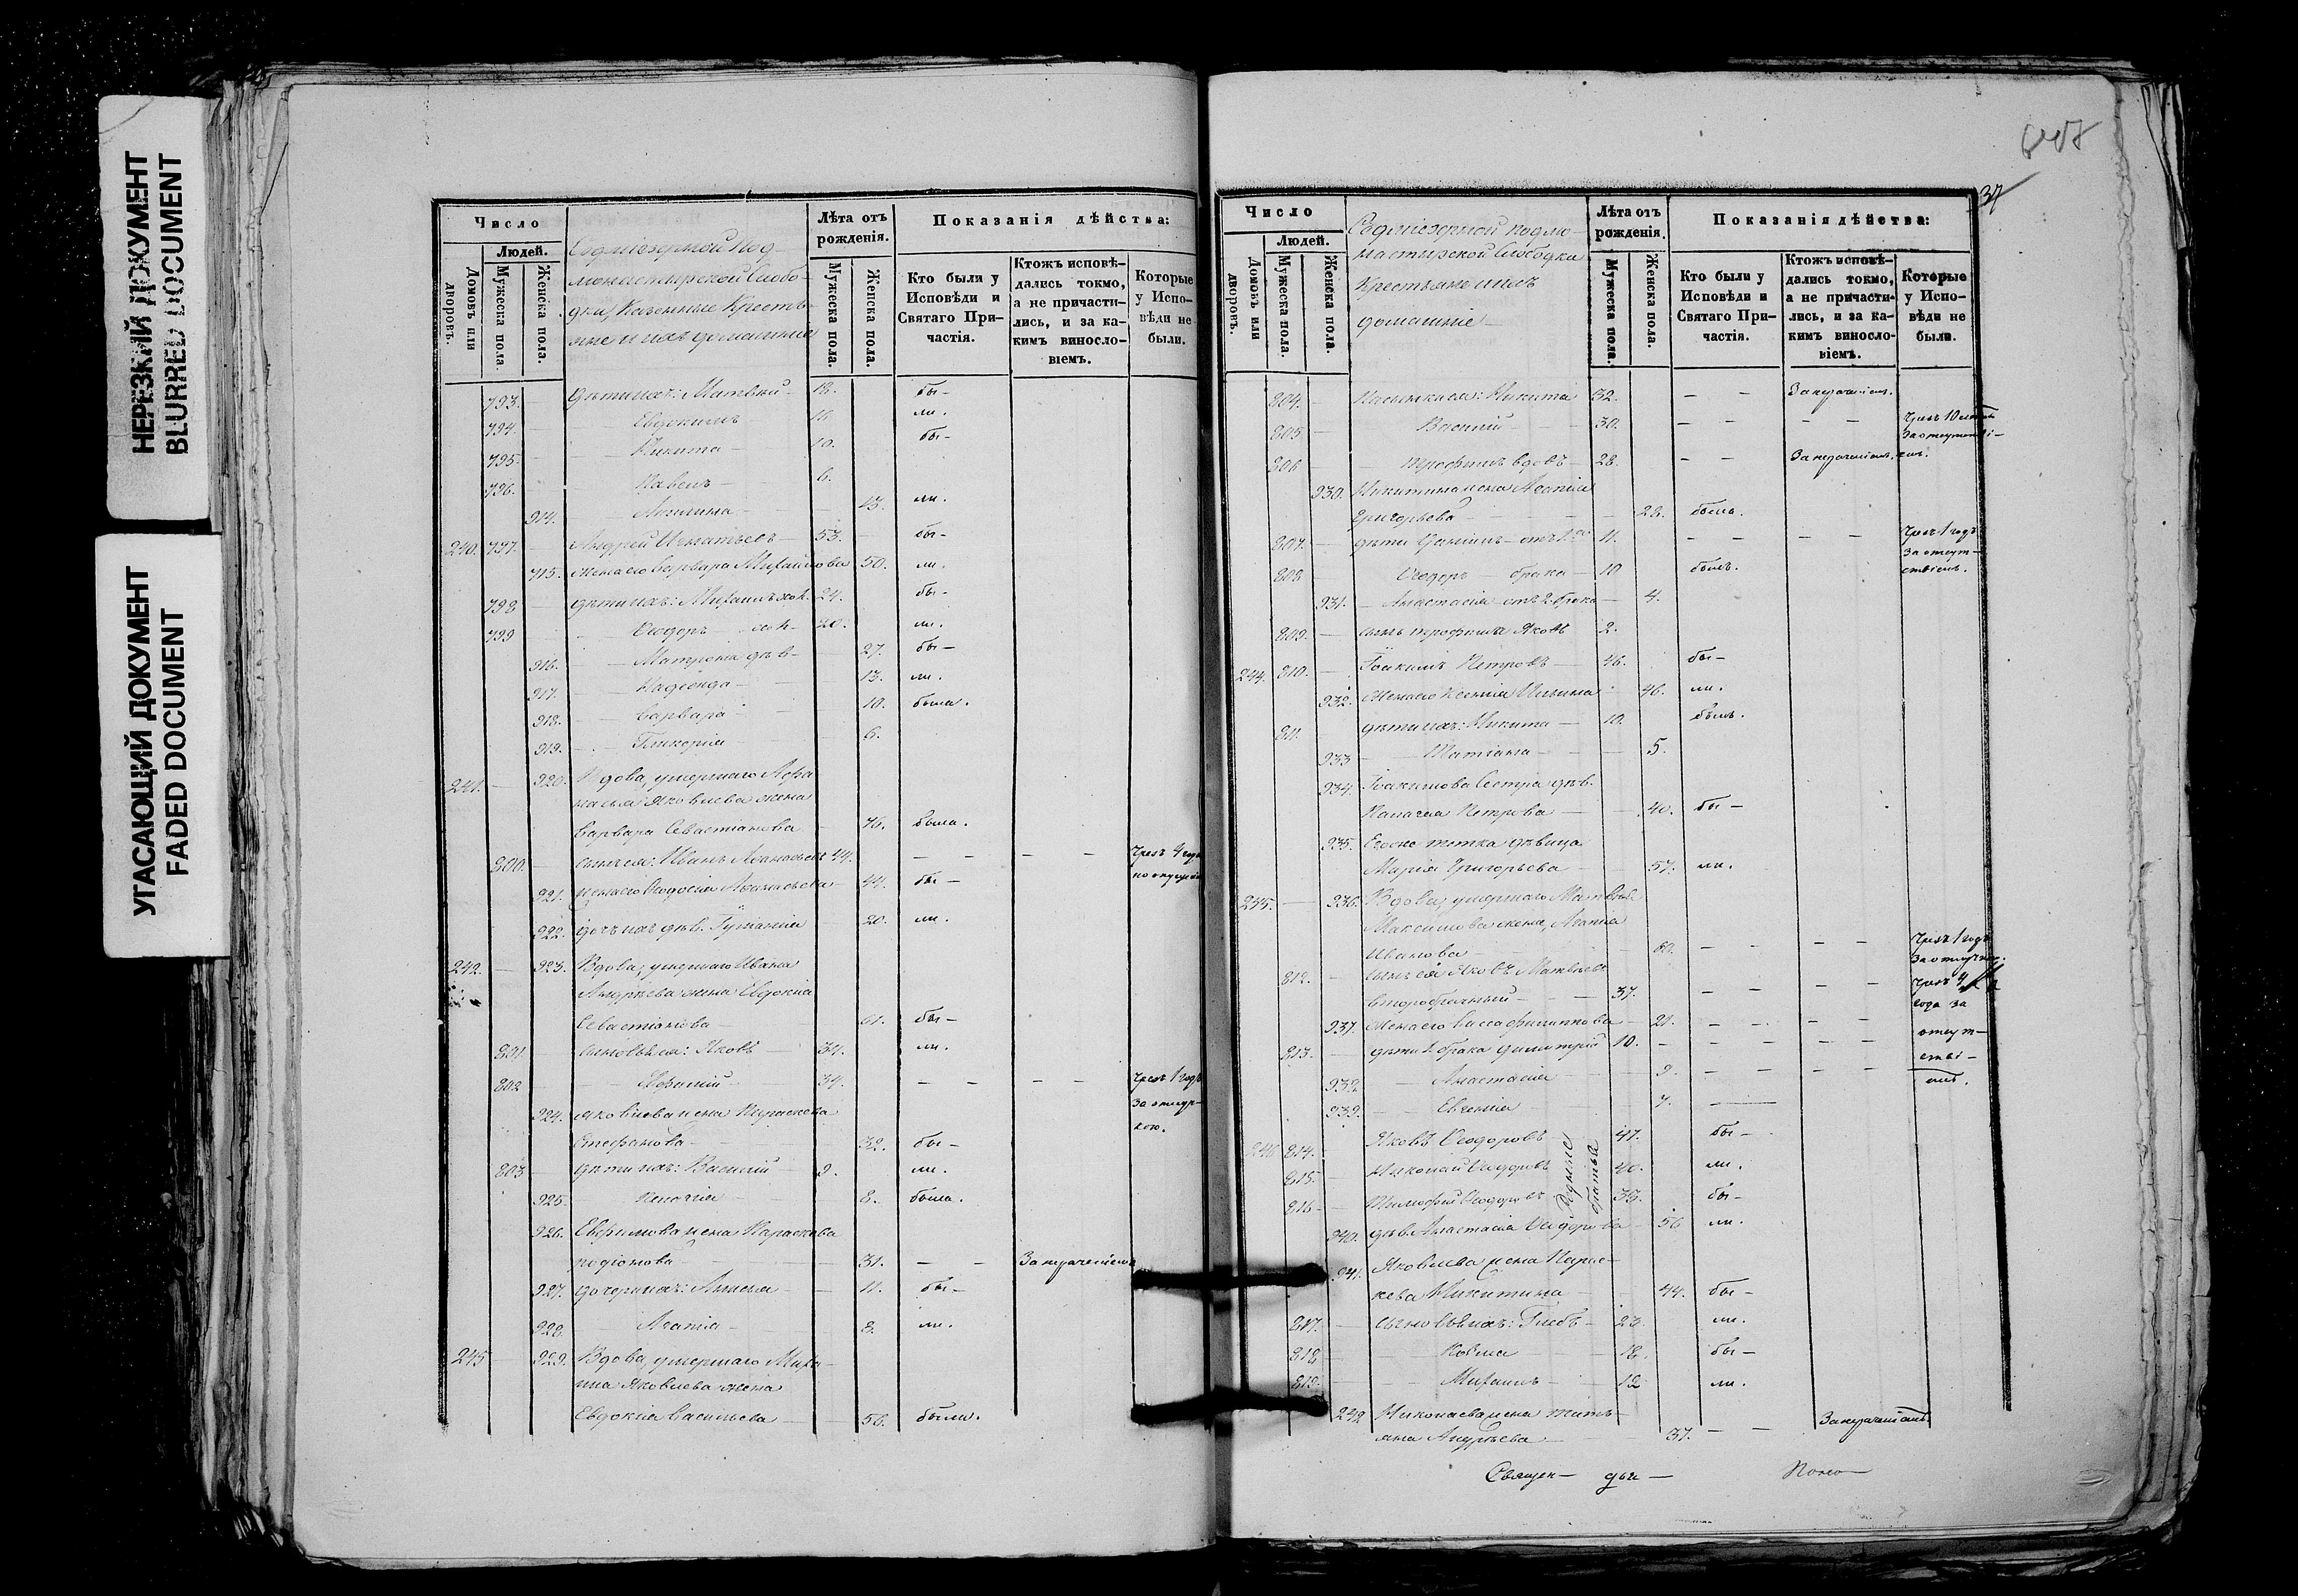 НЕРЕЗКИЙ ДОКУМЕНТ
BLURRED DOCUMENT
УГАСАЮЩИЙ ДОКУМЕНТ
FADED DOCUMENT
Число
Людей.
Домовъ или дворовъ.
Мужеска пола.
Женска пола.
Лѣта отъ рожденія.
Мужеска пола.
Женска пола.
Показанія дѣйства:
Кто были у Исповѣди и Святаго Причастія.
Ктожъ исповѣдались токмо, а не причастились, и за какимъ винословіемъ.
Которые у Исповѣди не были.
Седміезерной Под-
монастырской Слобо-
дки, Казенные Крестья-
не и ихъ домашніе
793. дѣти ихъ: Матвей 18. бы-
794. Евдокимъ ли.
795. Никита 10. бы-
796. Павелъ 6.
914. 13. ли.
240. 797. Андрей Игнатьевъ 53. бы-
915. жена его Варвара Михайлова 50. ли.
798 дѣти ихъ: Михаилъ хол. 24. бы-
799 Ѳеодоръ хол. 20. ли.
916. Матрона дѣв. 27. бы-
917. Надежда 13. ли.
918. Варвара 10. была.
919. Гликерія 6.
241. 920. Вдова, умершаго Афа-
насья Яковлева жена
Варвара Севастіанова 76. была.
800. сынъ ея: Иванъ Афанасьевъ 44. Чрезъ 4 года
921. жена его Ѳеодосія Афанасьева 44. бы-
922. дочь ихъ дѣв. Іуліанія 20. ли.
242. 923. Вдова, умершаго Ивана
Андреева жена Евдокія
Севастіанова 61. бы-
801 сыновья ея: Яковъ 34. ли.
802 34. Чрезъ 1 годъ
За отлуч-
кою.
924. Яковлева жена Параскева
Стефанова 32. бы-
803 дѣти ихъ: Василий 9. ли.
925. Пелагія 8. была.
926. Евфимова жена Параскева
Родіонова 31. За нераченіемъ
927. дочери ихъ: 11. бы-
928. Агапія 8. ли.
243 929. Вдова, умершаго Миха-
ила Яковлева жена
Евдокія Васильева 58. была.
37
Число
Людей.
Домовъ или дворовъ.
Мужеска пола.
Женска пола.
Лѣта отъ рожденія.
Мужеска пола.
Женска пола.
Показанія дѣйства:
Кто были у Исповѣди и Святаго Причастія.
Ктожъ исповѣдались токмо, а не причастились, и за какимъ винословіемъ.
Которые у Исповѣди не были.
Седміезерной Подмо-
настырской Слободки
Крестьяне и ихъ
домашніе
804. Пасынки ея: Никита 32. За нераченіемъ.
805 Василий 30. Чрезъ 10 лѣтъ
За отсутстві-
емъ.
806 Трофимъ вдовъ 28. За нераченіемъ.
930. Никитина жена Агапія
Григорьева 28. была.
807. дѣти Даніилъ отъ 1го 11. Чрезъ 1 годъ
За отсут-
ствіемъ.
808 Ѳеодоръ брака 10 былъ.
931. Анастасія отъ 2. брака 4.
809. сынъ Трофима Яковъ 2.
244. 810. Іоакимъ Петровъ 46. бы-
932. Жена его Ксенія Ильина 46. ли.
811. дѣти ихъ: Никита 10. былъ.
933 Татіана 5.
934. Іоакимова Сестра дѣв.
Палагея Петрова 40. бы-
935. Его же тетка дѣвица
Марія Григорьева 57. ли.
245. 936. Вдова, умершаго Матвея
Максимова жена, Агапія
Иванова 60. Чрезъ 1 годъ
За отлучкою.
812. сынъ ея Яковъ Матвеевъ
второбрачный 37. Чрезъ 4
года за
отсут-
стві-
емъ.
937. Жена его Васса Филиппова 21.
813. дѣти 1. брака Димитрій 10.
938 Анастасія 9.
939. Евгенія 7.
246 814. Яковъ Ѳеодоровъ 47. бы-
815. Николай Ѳеодоровъ 40. ли.
816 Тимофей Ѳеодоровъ 39. бы-
Родные братья
940. дѣв. Анастасія Ѳеодорова 56 ли.
941. Яковлева жена Парас-
кева Никитина 44. бы-
817. сыновья ихъ: Глебъ 23. ли.
818 Козма 18. бы-
819. Михаилъ 12 ли.
242 Николаева жена Тать-
яна Андреева 37. За нераченіемъ
Священ-